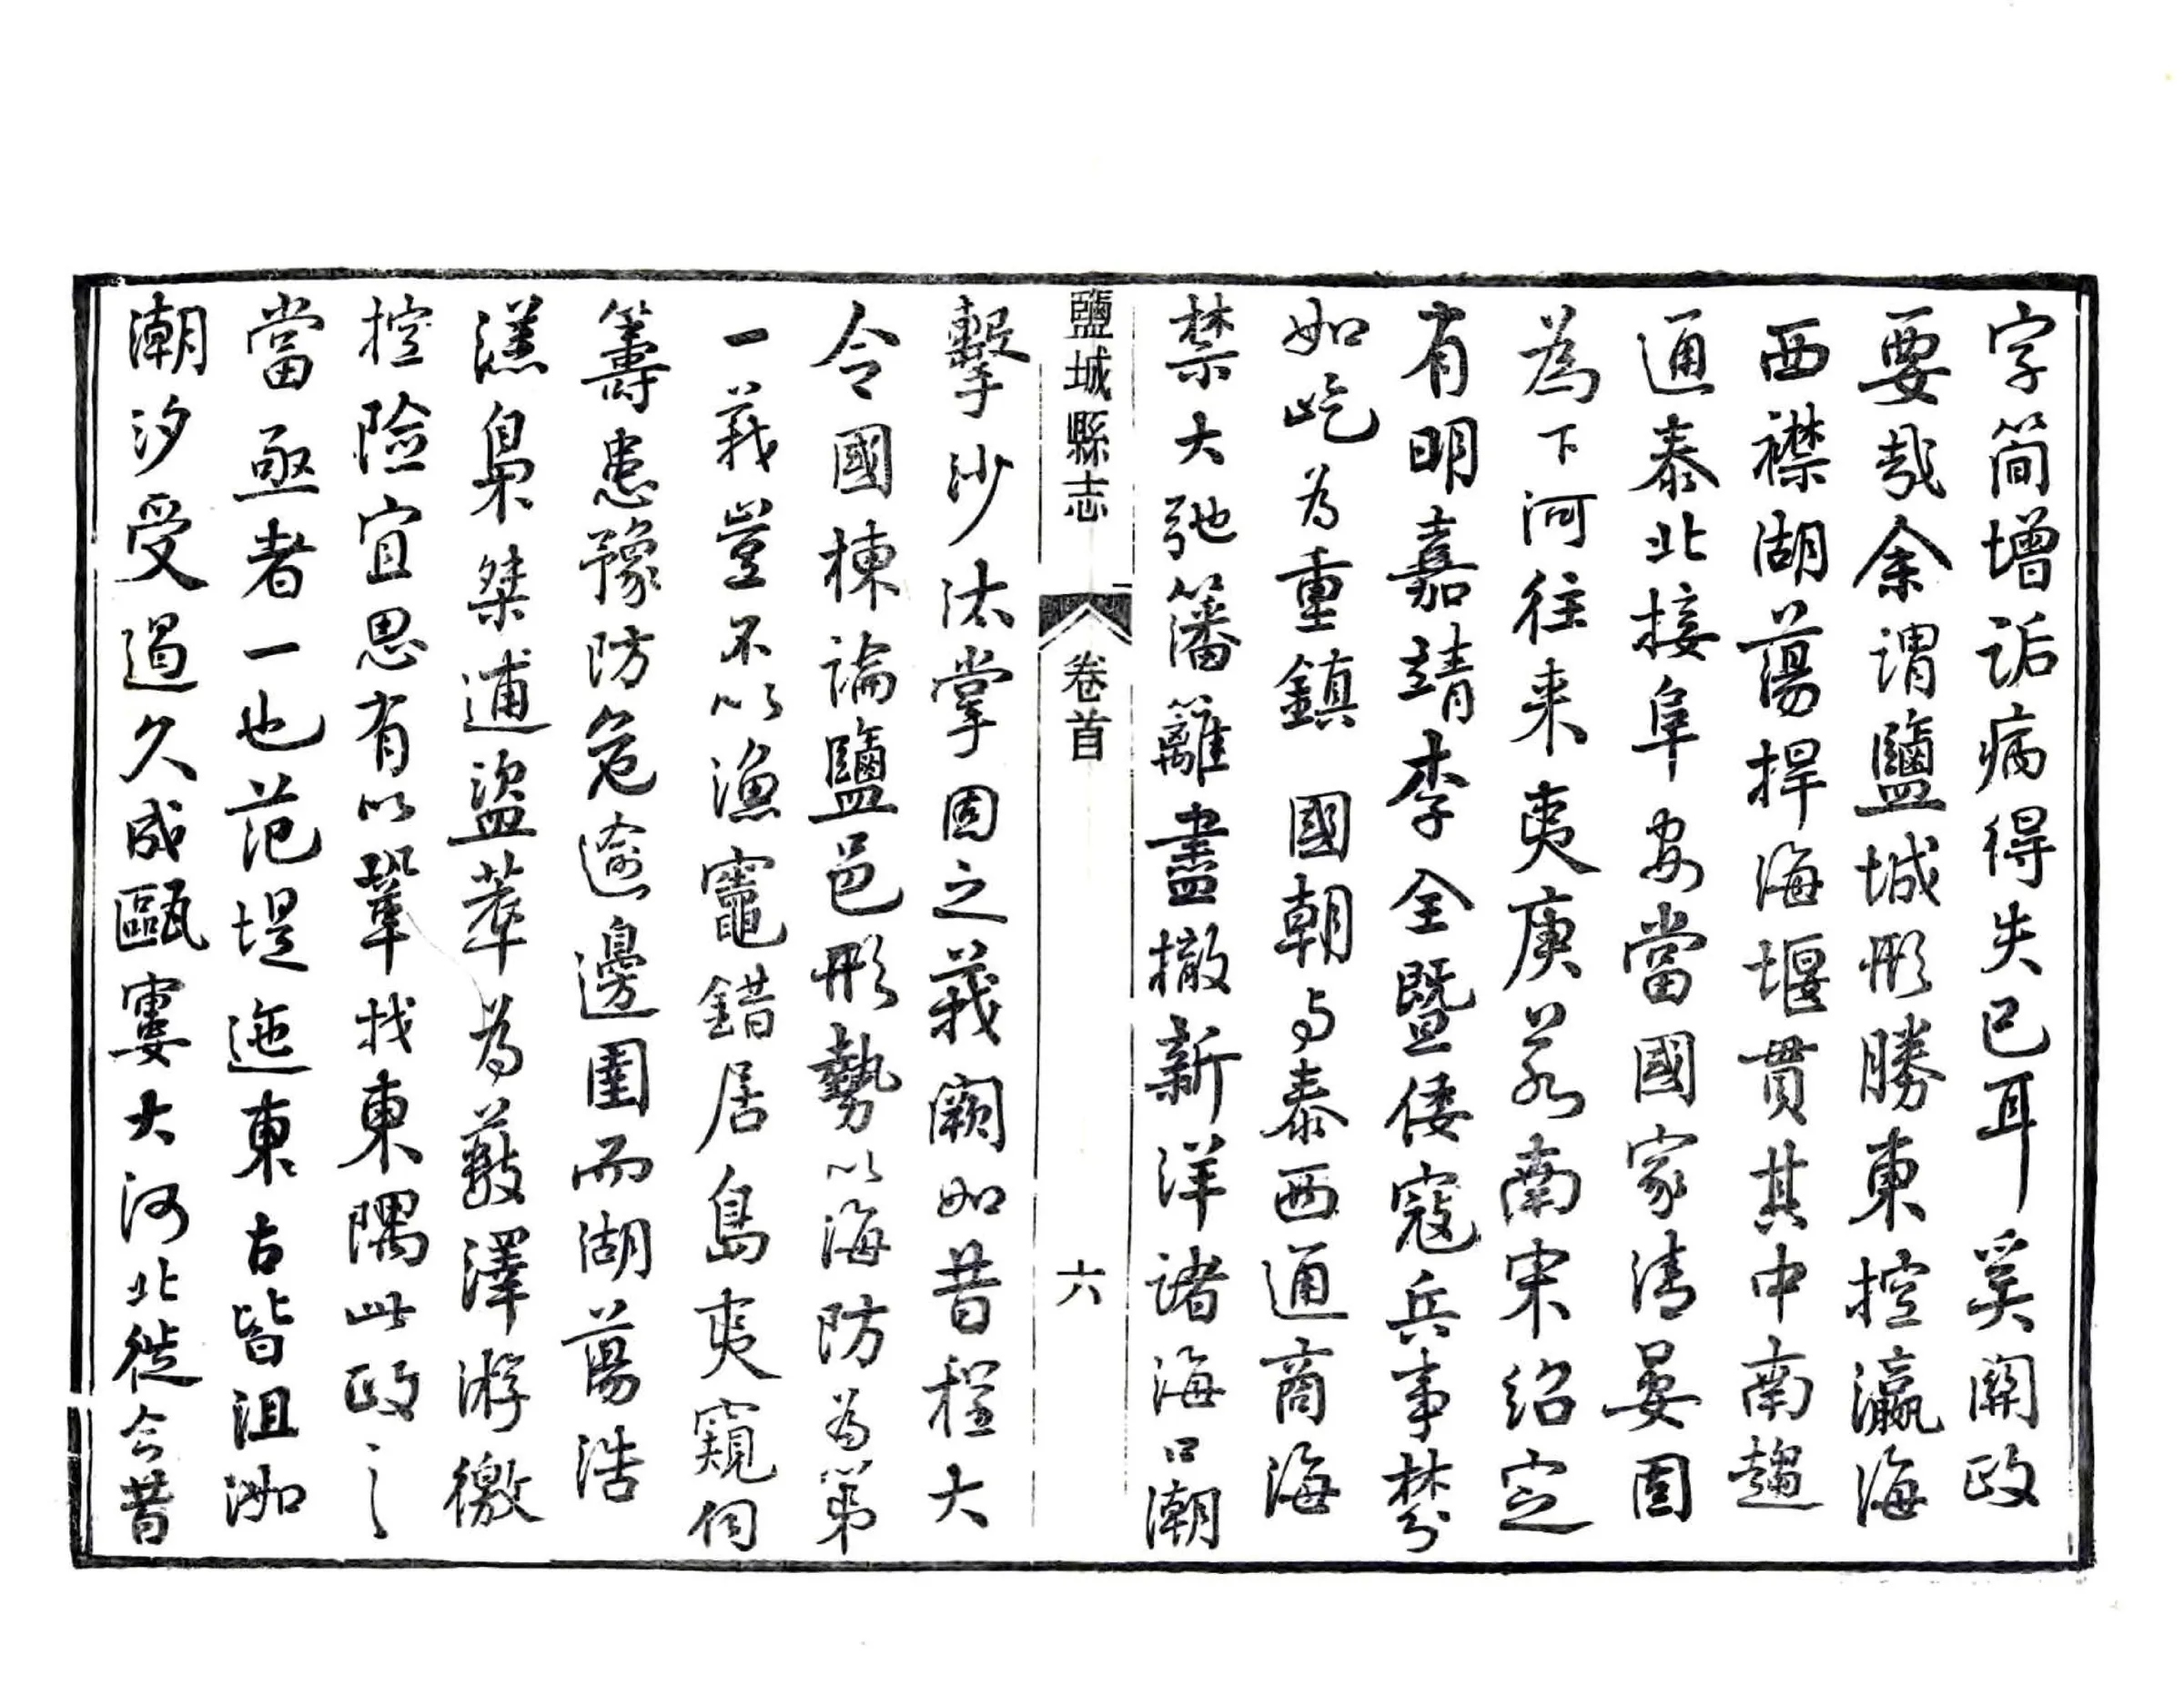 字簡增詬病得失已耳奚關政
要哉余謂鹽城形勝東控瀛海
西襟湖蕩捍海堰貫其中南趨
通泰北接阜安當國家清晏固
為下河往来夷庚若南宋紹定
有明嘉靖李全暨倭寇兵事棼
如屹為重鎮　國朝与泰西通商海
禁大弛籓籬盡撤新洋諸海口潮
鹽城縣志　卷首　六
擊沙汰掌固之義闕如昔程大
令國棟論鹽邑形勢以海防為第
一義豈不以漁竈錯居島夷窺伺
籌患豫防危逾邊圉而湖蕩浩
漾梟桀逋盜萃為藪澤游徼
控險宜思有以鞏找東隅此政之
當亟者一也范堤迤東古皆沮洳
潮汐受遏久成甌窶大河北徙今昔